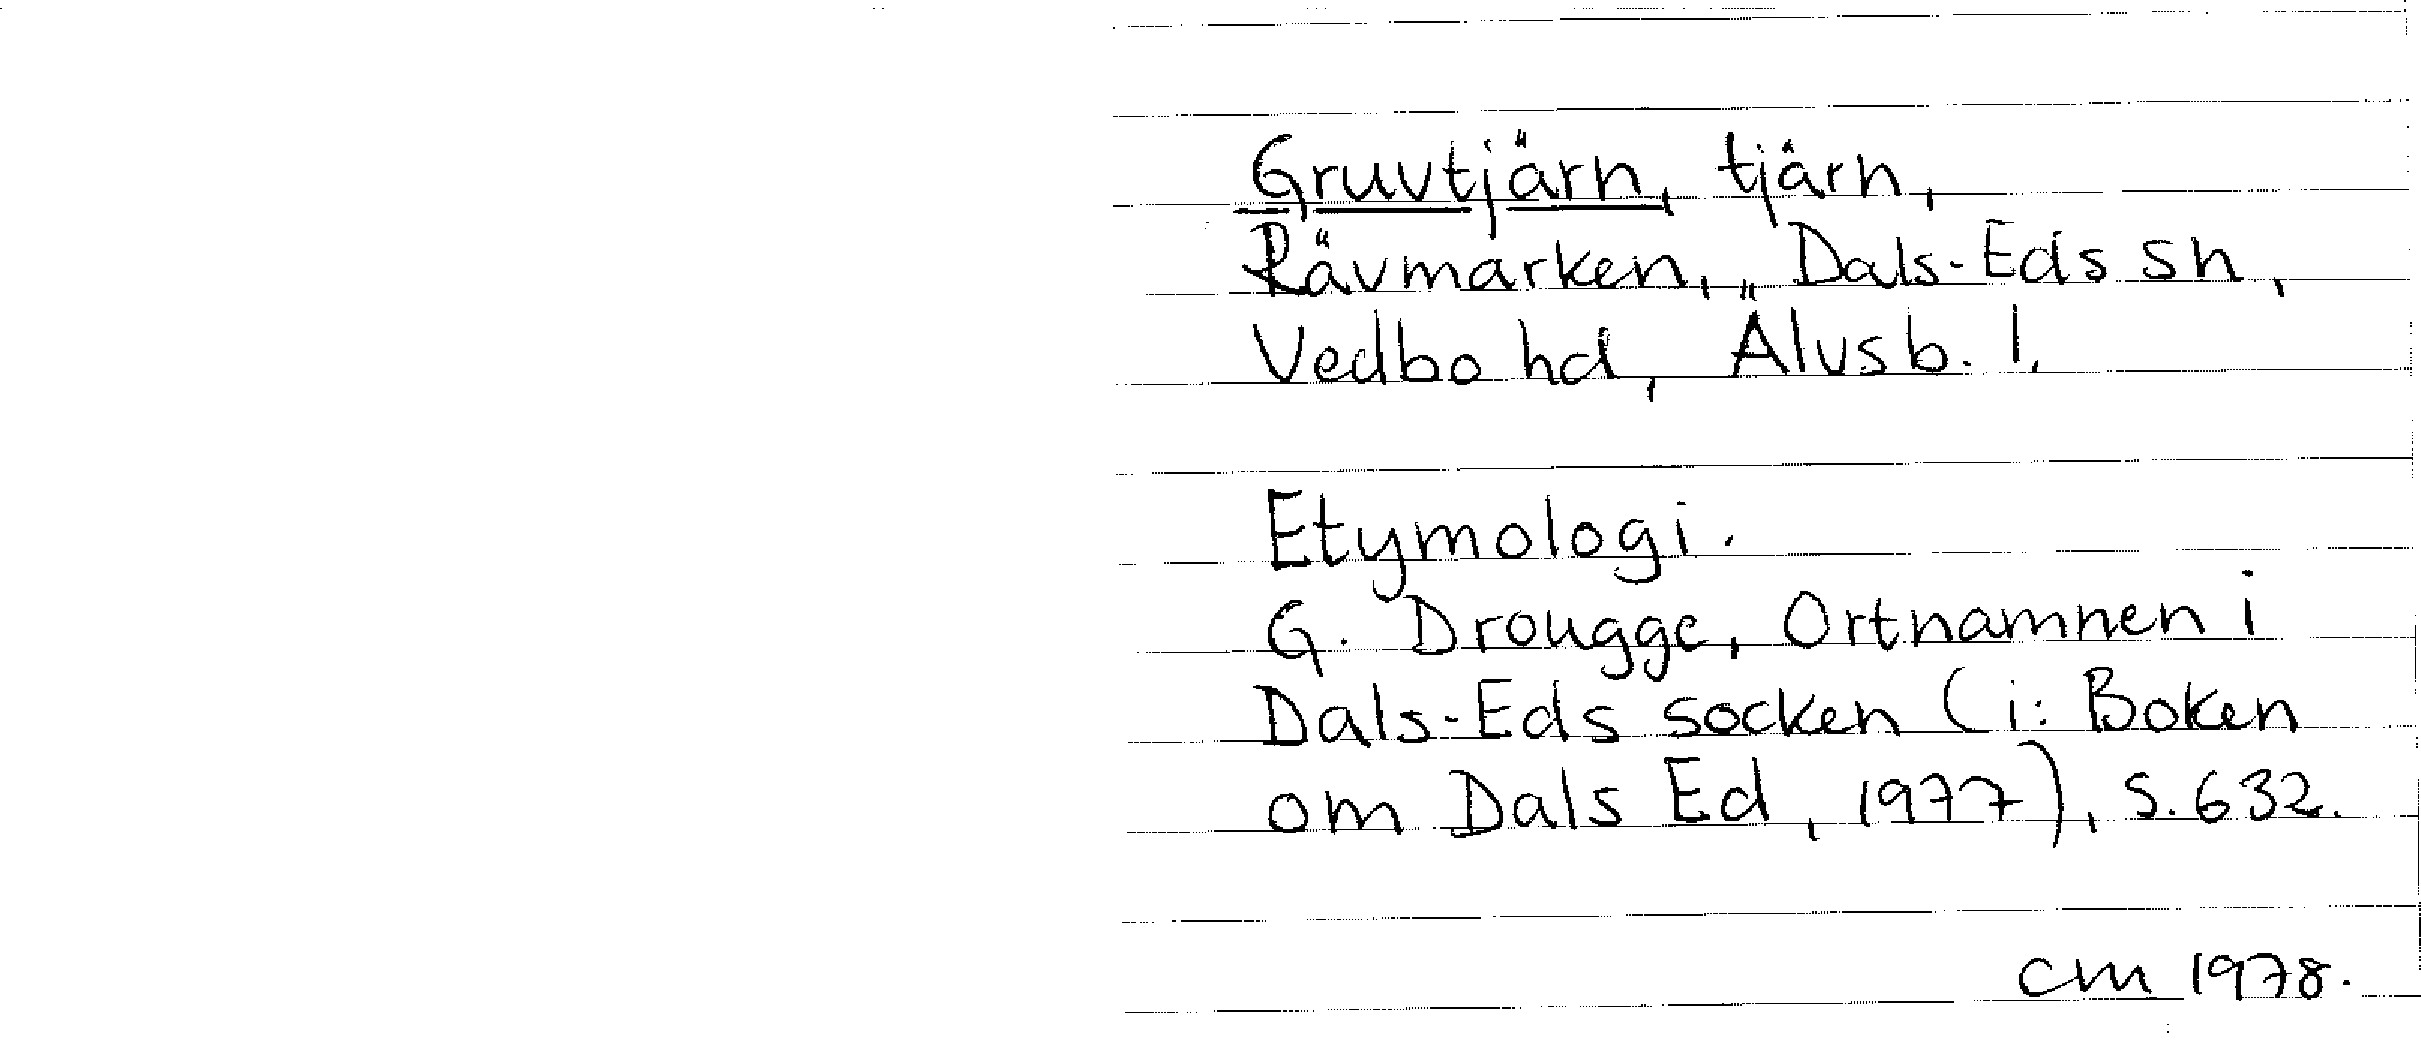 Gruvtjärn, tjärn,
Rävmarken, Dals-Eds sn,
Vedbo hd, Älvsb. l.
Etymologi.
G. Drougge, Ortnamnen i
Dals-Eds socken (i: Boken
om Dals Ed, 1977), s. 632.
CM 1978.